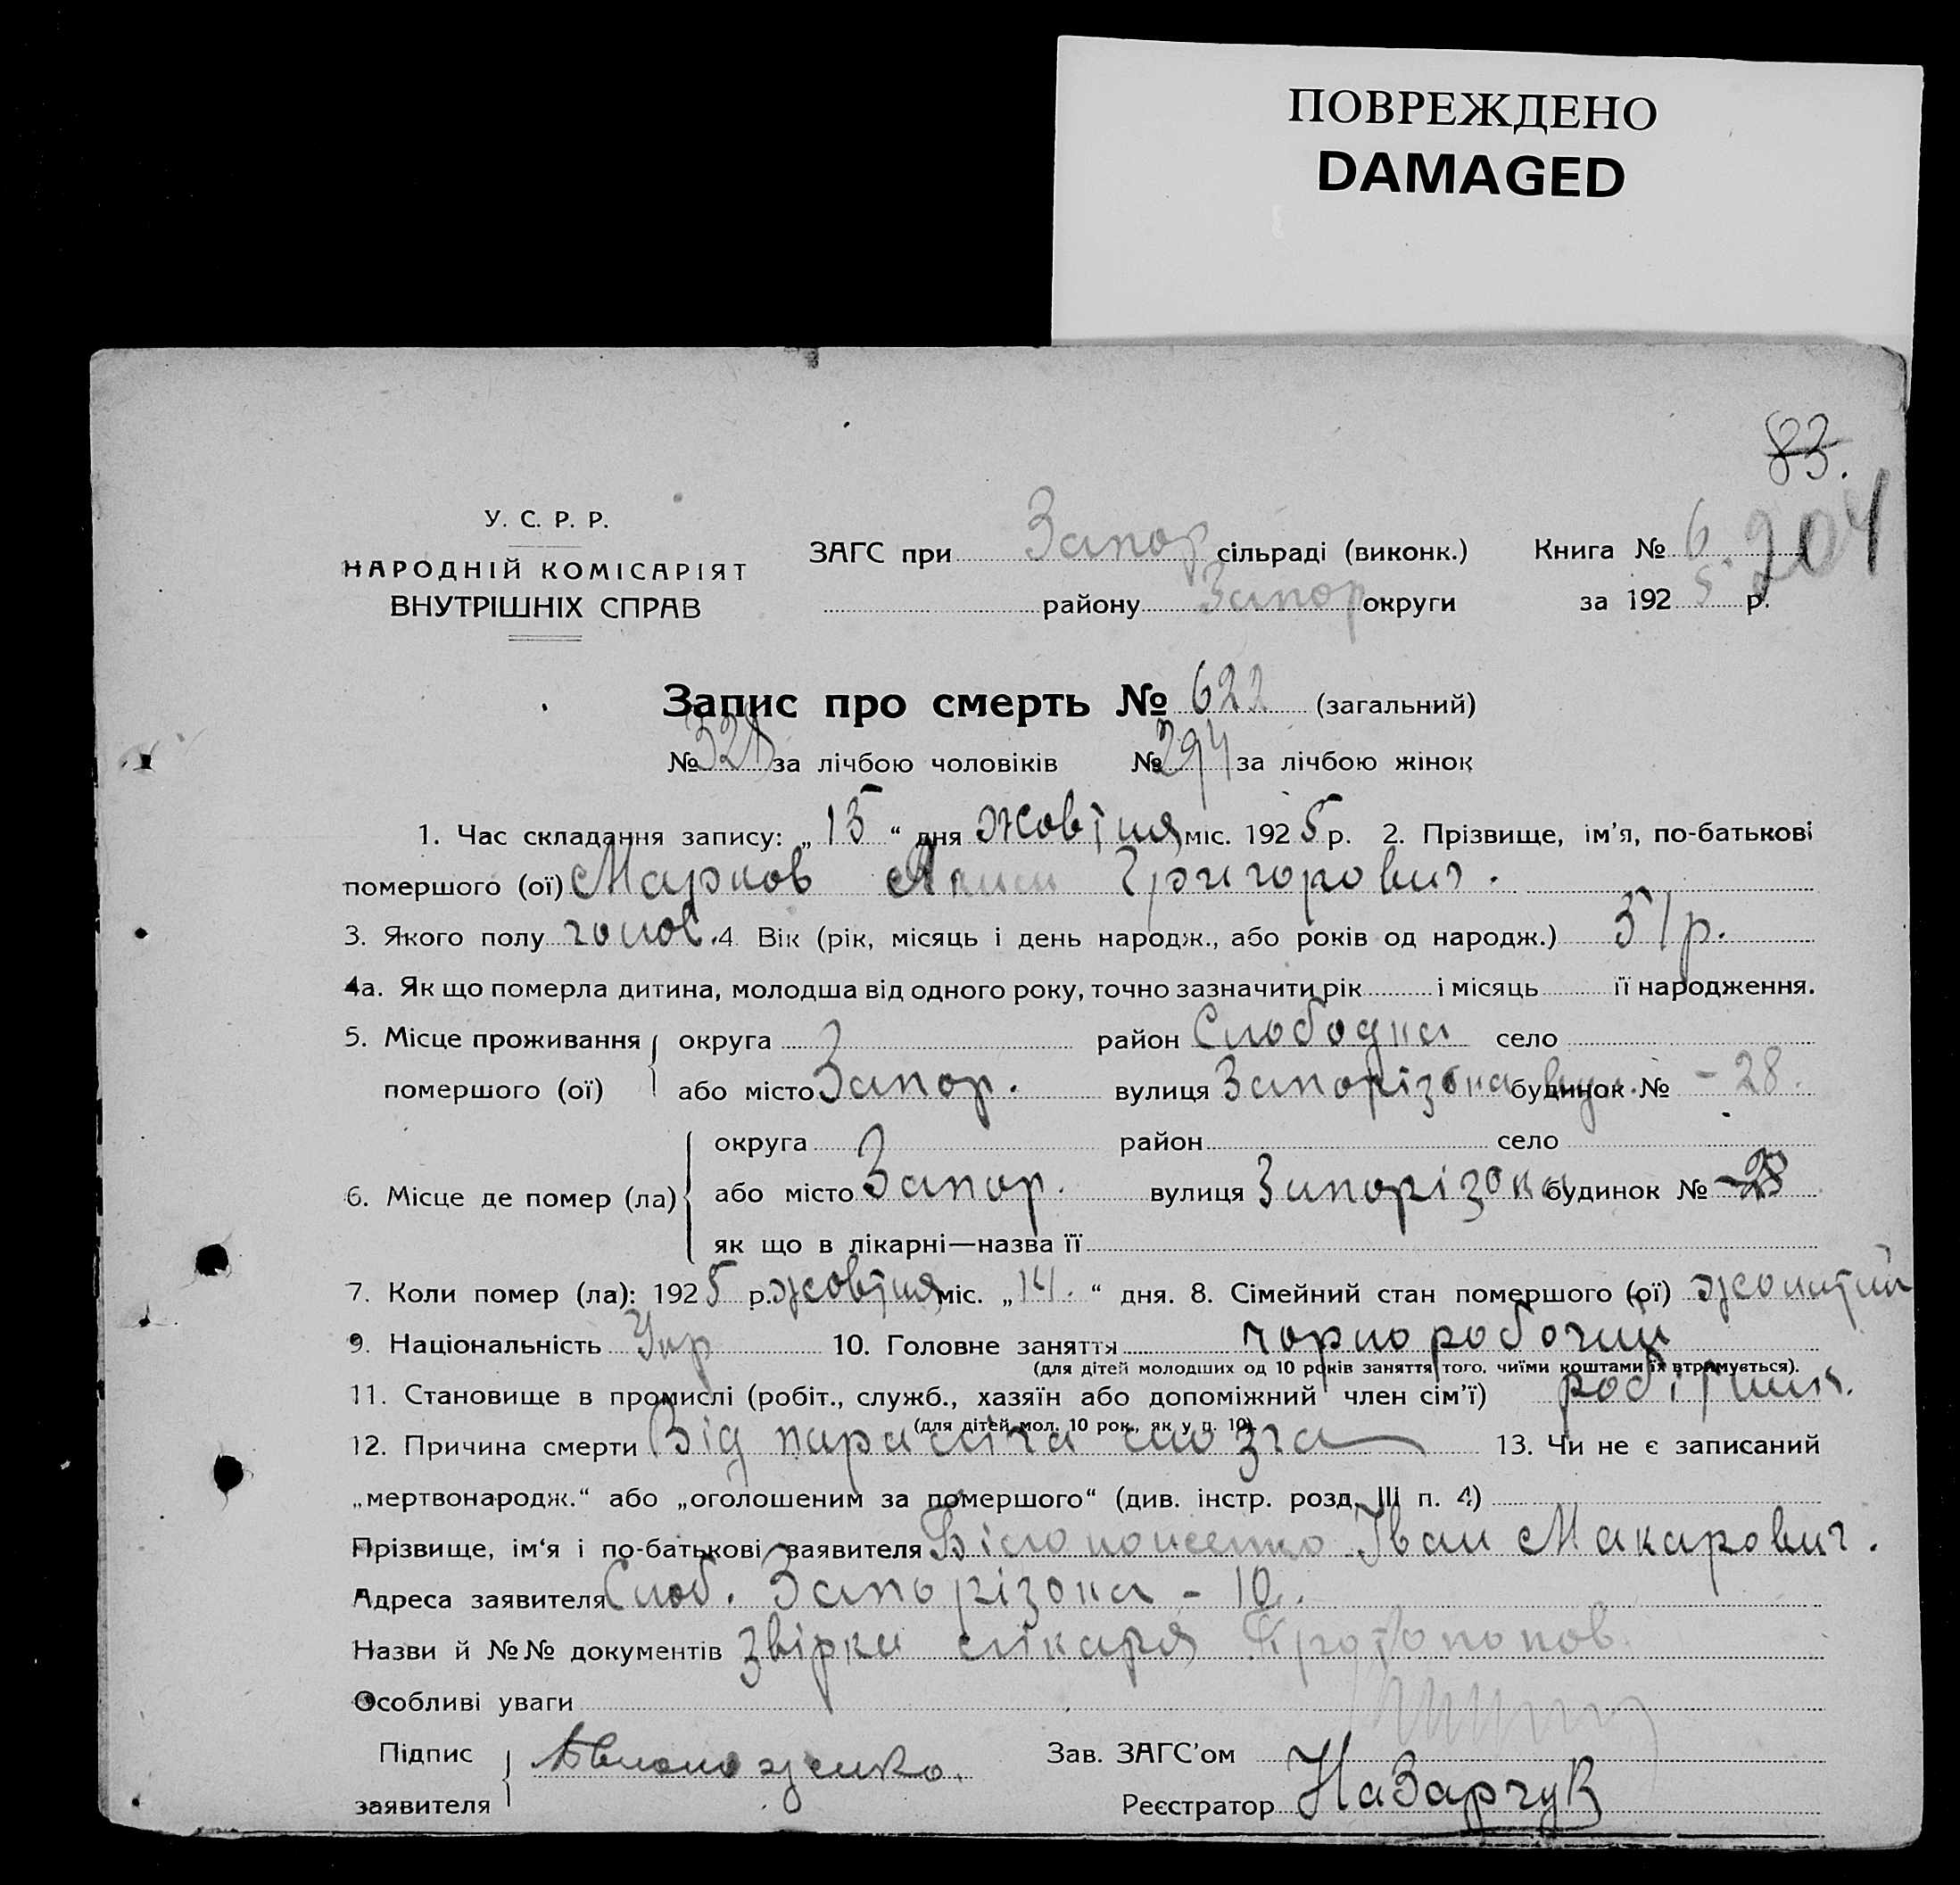 ПОВРЕЖДЕНО
DAMAGED
83.
204
У. С. Р. Р.
НАРОДНІЙ КОМІСАРІЯТ
ВНУТРІШНІХ СПРАВ
ЗАГС при Запор сільраді (виконк.) Книга № 6
району Запор округи за 192 5 р.
Запис про смерть № 622 (загальний)
№ 328 за лічбою чоловіків № 294 за лічбою жінок
1. Час складання запису: „ 15 “ дня жовтня міс. 192 5 р. 2. Прізвище, ім'я, по-батькові
помершого (ої) Марков Григорович.
3. Якого полу чолов. 4 Вік (рік, місяць і день народж., або років од народж.) 51 р.
4а. Як що померла дитина, молодша від одного року, точно зазначити рік і місяць її народження.
5. Місце проживання округа район Слободка село
помершого (ої) або місто Запор. вулиця Запорізька вул. будинок № - 28.
округа район село
6. Місце де помер (ла) або місто Запор. вулиця Запорізька будинок № - 28
як що в лікарні—назва її
7. Коли помер (ла): 192 5 р. жовтня міс. „ 14. “ дня. 8. Сімейний стан помершого (ої) жонатий
9. Національність Укр 10. Головне заняття чорноробочий
(для дітей молодших од 10 років заняття того, чиїми коштами їх втримується).
11. Становище в промислі (робіт., служб., хазяїн або допоміжний член сім'ї) робітник.
(для дітей мол. 10 рок., як у п. 10).
12. Причина смерти Від параліча мозга 13. Чи не є записаний
„мертвонародж.“ або „оголошеним за помершого“ (див. інстр. розд. III п. 4)
Прізвище, ім'я і по-батькові заявителя Іван Макарович.
Адреса заявителя Слоб. Запорізька - 10.
Назви й №№ документів звірка лікаря Протопопов.
Особливі уваги
Підпис Зав. ЗАГС'ом
заявителя Реєстратор Назарчук